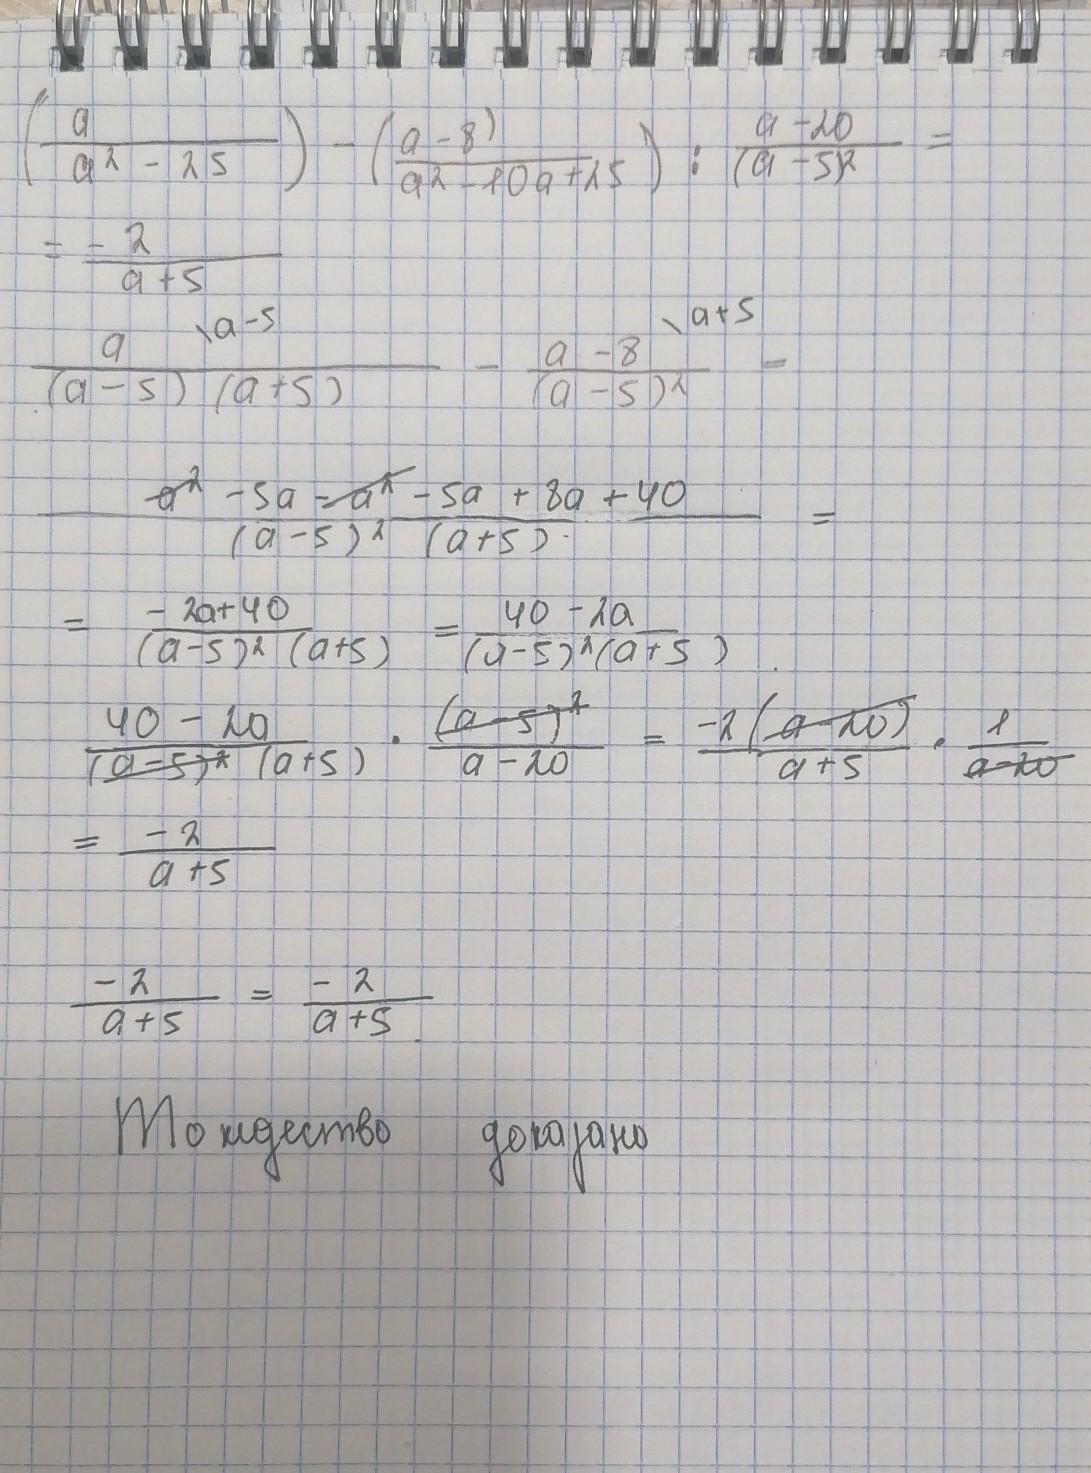 ( a / a² - 25 ) - ( a - 8) / a² - 10a + 25 ) : a - 20 / (a - 5)² =
= - 2 / a + 5
a / (a - 5) (a + 5) \a - 5 - a - 8 / (a - 5)² \a + 5 =
a² - 5a - a² - 5a + 8a + 40 / (a - 5)² (a + 5) =
= - 2a + 40 / (a - 5)² (a + 5) = 40 - 2a / (a - 5)² (a + 5)
40 - 2a / (a - 5)² (a + 5) · (a - 5)² / a - 20 = -2 (a - 20) / a + 5 · 1 / a - 20
= - 2 / a + 5
- 2 / a + 5 = - 2 / a + 5
Тождество доказано